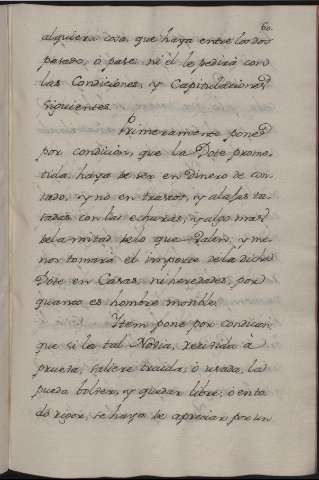 60.
alguiera cosa, que haya entre los dos
pasado, ò pase, ni èl le pedirà con
las Condiciones, y Capitulaciones
siguientes.
Primeramente pone
por condicion, que la Dote prome-
tida, haya de ser en Dinero de con-
tado, y no en trastos, y alajas ta-
sadas con las echuras, y algo mas
de la mitad de lo que valen, y me-
nos tomarà el importe de la dicha
Dote en Casas, ni heredades, por
quanto es hombre moble.
Ytem pone por condicion
que si la tal Novia, recivida a
prueba, saliere traida, ò usada, la
pueda bolver, y quedar libre, ò en to-
do rigor, se haya de apreciar por un